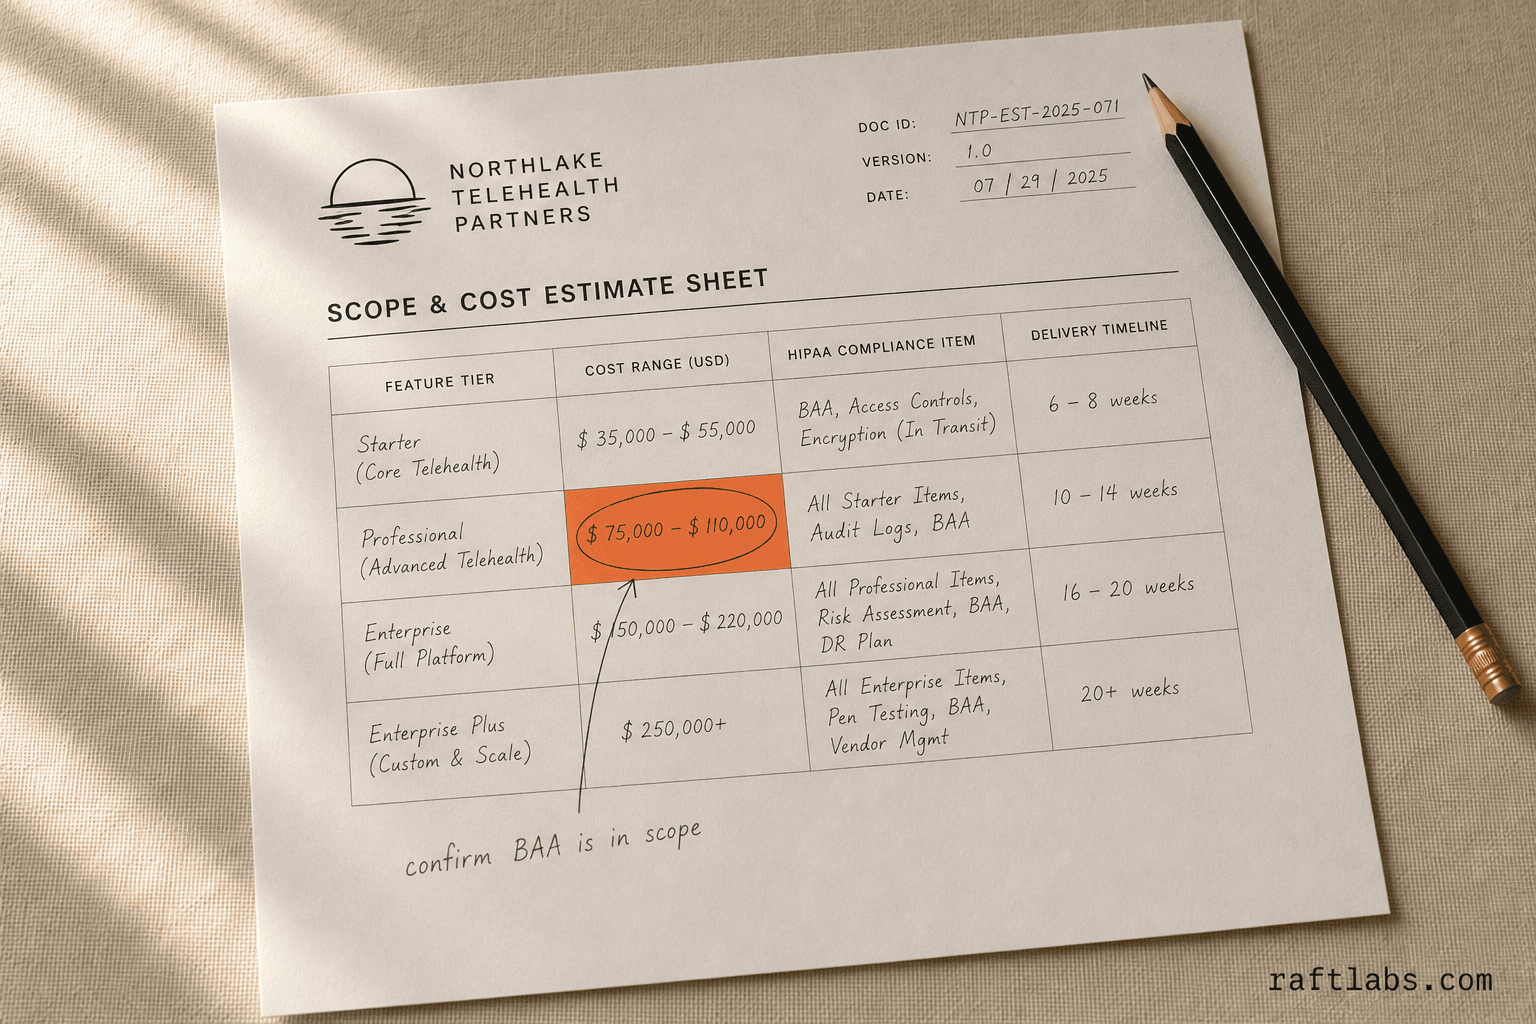 NORTHLAKE
TELEHEALTH
PARTNERS
DOC ID: NTP-EST-2025-071
VERSION: 1.0
DATE: 07 / 29 / 2025
SCOPE & COST ESTIMATE SHEET
FEATURE TIER
COST RANGE (USD)
HIPAA COMPLIANCE ITEM
DELIVERY TIMELINE
Starter
(Core Telehealth)
$ 35,000 – $ 55,000
BAA, Access Controls,
Encryption (In Transit)
6 – 8 weeks
Professional
(Advanced Telehealth)
$ 75,000 – $ 110,000
All Starter Items,
Audit Logs, BAA
10 – 14 weeks
Enterprise
(Full Platform)
$ 150,000 – $ 220,000
All Professional Items,
Risk Assessment, BAA,
DR Plan
16 – 20 weeks
Enterprise Plus
(Custom & Scale)
$ 250,000+
All Enterprise Items,
Pen Testing, BAA,
Vendor Mgmt
20+ weeks
confirm BAA is in scope
raftlabs.com